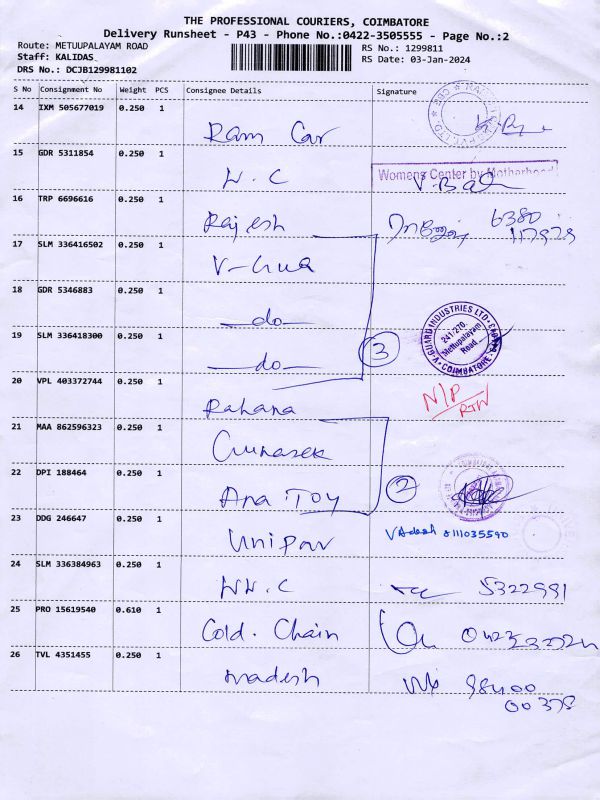 THE PROFESSIONAL COURIERS, COIMBATORE
Delivery Runsheet - P43 - Phone No.:0422-3505555 - Page No.:2
Route: METUUPALAYAM ROAD
RS No.: 1299811
Staff: KALIDAS
RS Date: 03-Jan-2024
DRS No.: DCJB129981102
S No Consignment No Weight PCS Consignee Details Signature
14 IXM 505677019 0.250 1
Ram Car
15 GDR 5311854 0.250 1
Womens Center by Motherhood
W.C
16 TRP 6696616 0.250 1
Rajesh 6380
117929
17 SLM 336416502 0.250 1
V-Gua
18 GDR 5346883 0.250 1
-do-
V-GUARD INDUSTRIES LTD
241-270,
Mettupalayam
Road
COIMBATORE
19 SLM 336418300 0.250 1
-do- 3
20 VPL 403372744 0.250 1
Rahana N/P
RTN
21 MAA 862596323 0.250 1
Gunasek
22 DPI 188464 0.250 1
Ana Toy 2
23 DDG 246647 0.250 1
Unipav 8111035590
24 SLM 336384963 0.250 1
W.C 5322981
25 PRO 15619540 0.610 1
Cold. Chain
26 TVL 4351455 0.250 1
madesh 98400
00378